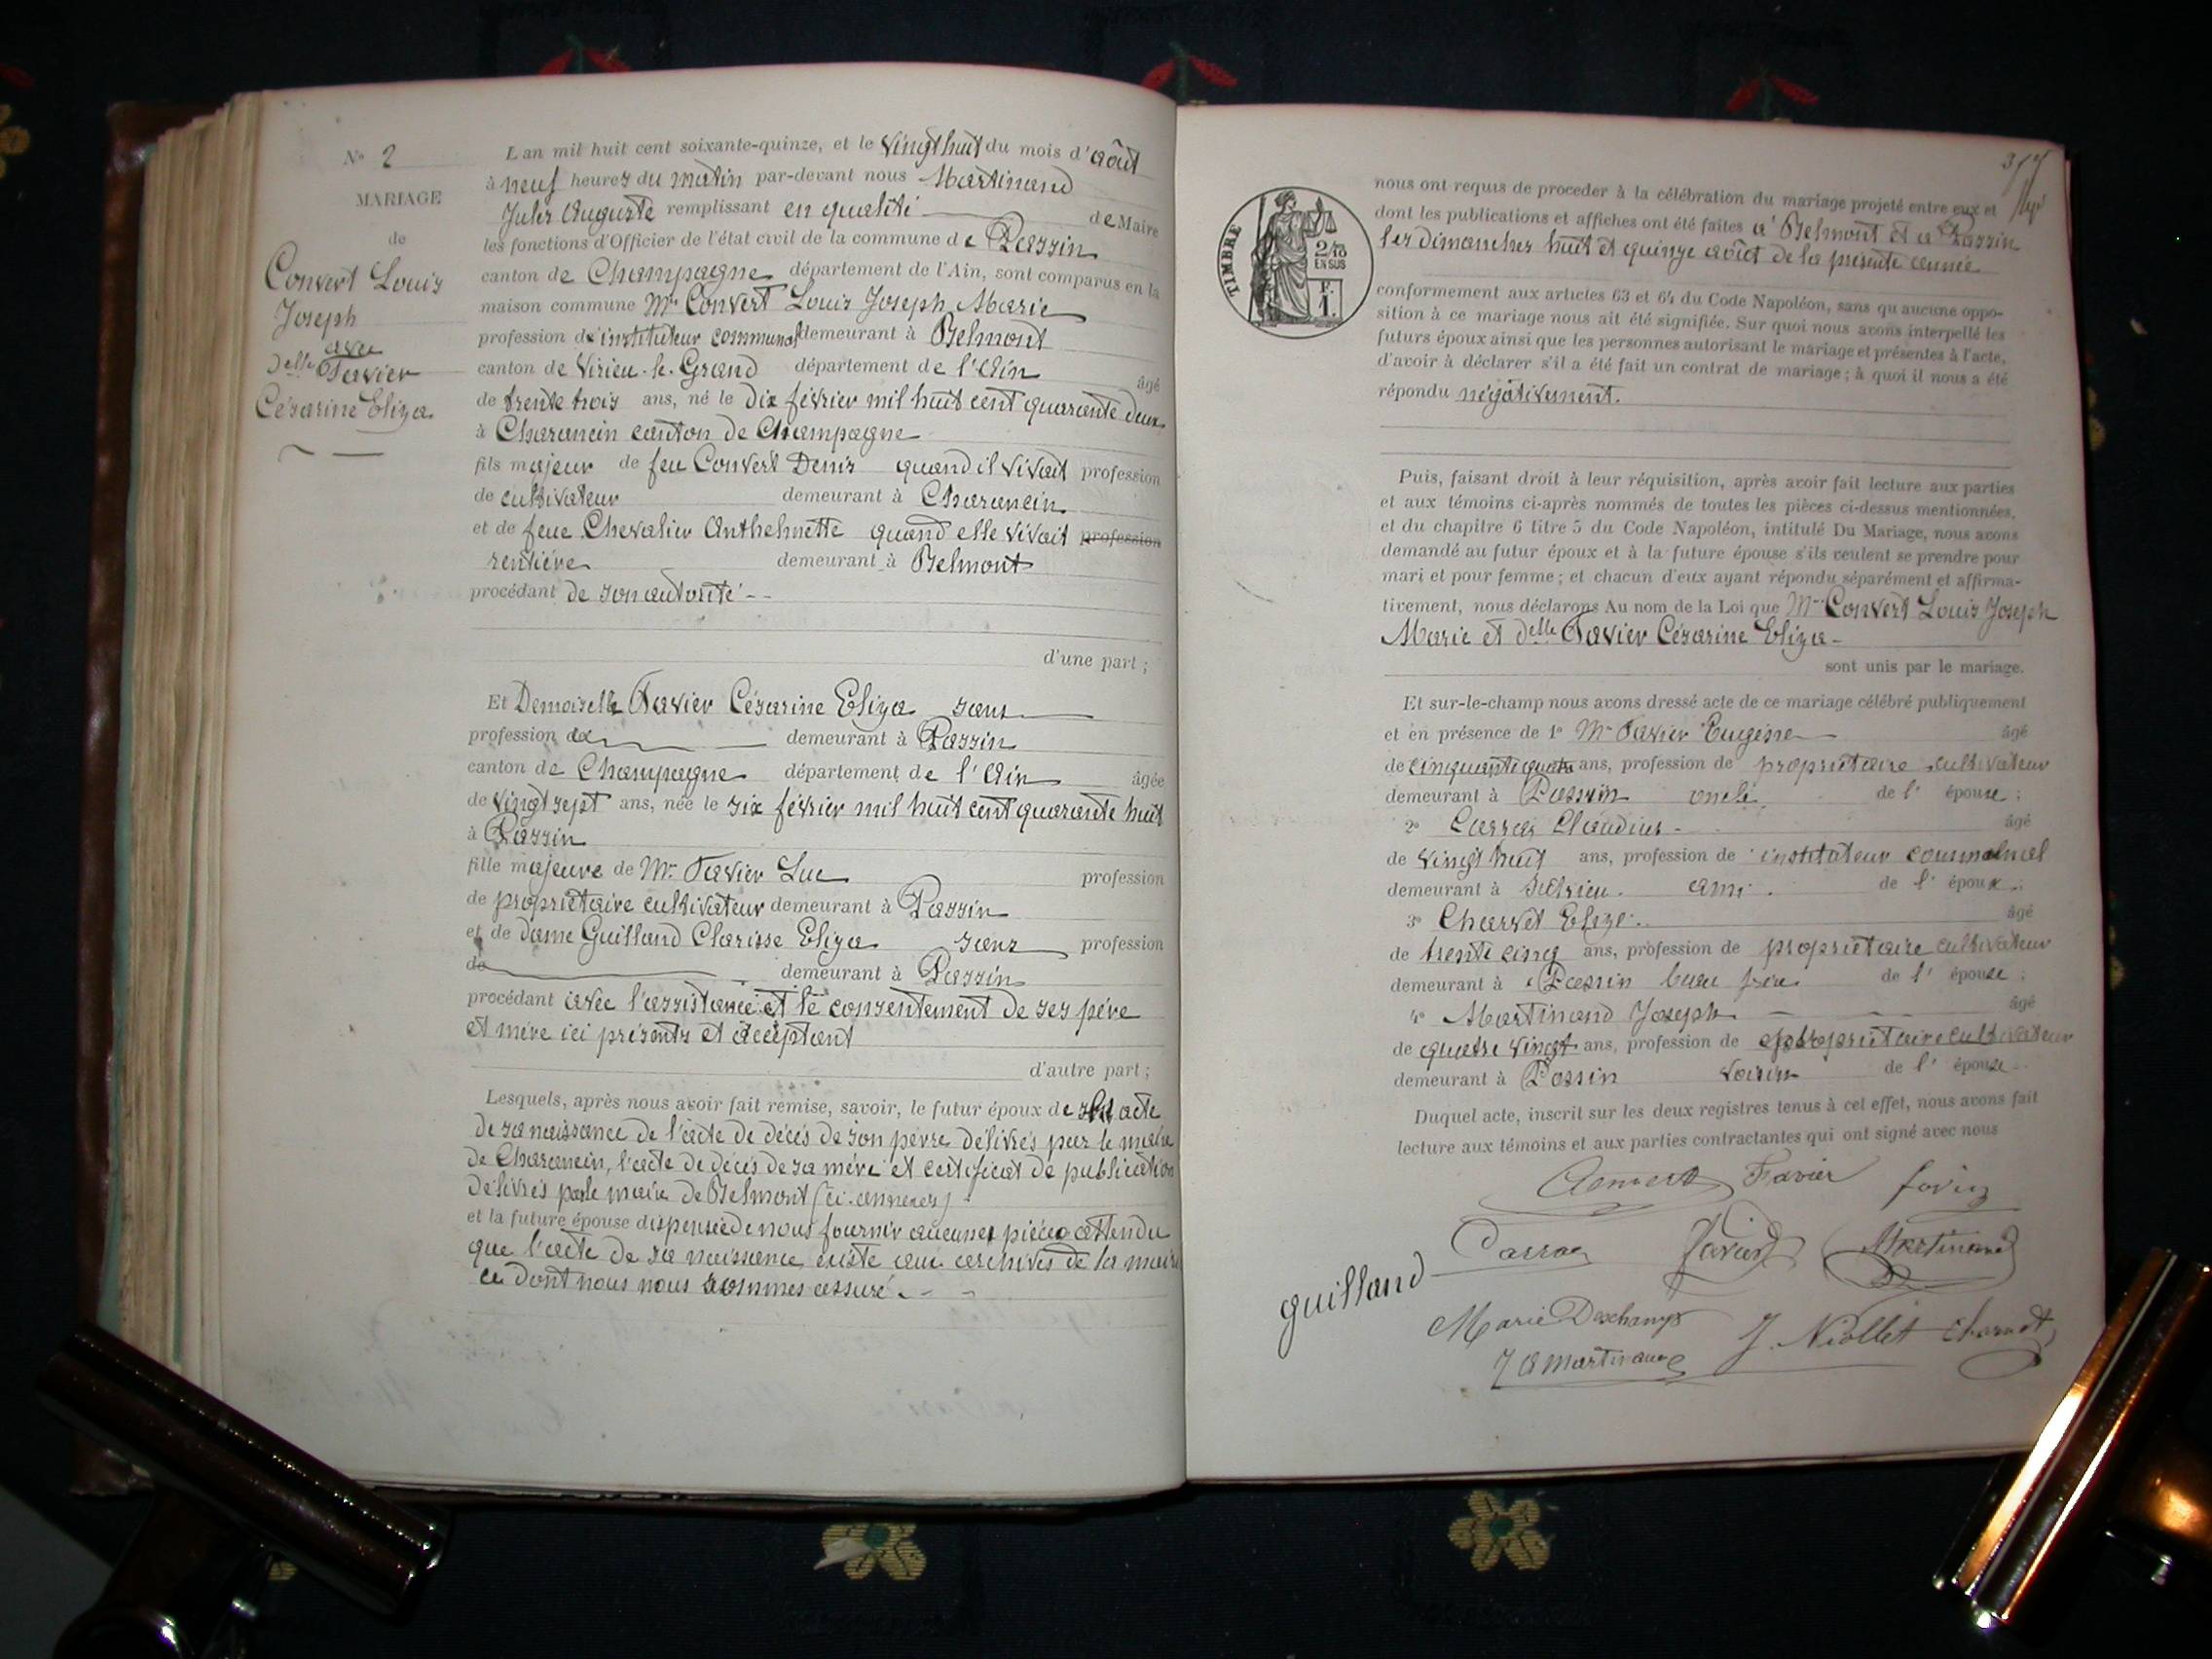 N° 2
MARIAGE
de
Convert Louis
Joseph
avec
Delle Favier
Césarine Eliza.
L'an mil huit cent soixante-quinze, et le vingt huit du mois d'août
à neuf heures du matin par-devant nous Martinand
Jules Auguste remplissant en qualité de Maire
les fonctions d'Officier de l'état civil de la commune de Passin
canton de Champagne département de l'Ain, sont comparus en la
maison commune Mr Convert Louis Joseph Marie
profession d'instituteur communal demeurant à Belmont
canton de Virieu-le-Grand département de l'Ain âgé
de trente trois ans, né le dix février mil huit cent quarante deux
à Charancin canton de Champagne
fils majeur de feu Convert Denis quand il vivait profession
de cultivateur demeurant à Charancin
et de feue Chevalier Anthelmette quand elle vivait profession
rentière demeurant à Belmont
procédant de son autorité
d'une part ;
Et Demoiselle Favier Césarine Eliza sans
profession de demeurant à Passin
canton de Champagne département de l'Ain âgée
de vingt sept ans, née le six février mil huit cent quarante huit
à Passin
fille majeure de Mr Favier Luc profession
de propriétaire cultivateur demeurant à Passin
et de Dame Guilland Clarisse Eliza sans profession
de demeurant à Passin
procédant avec l'assistance et le consentement de ses père
et mère ici présents et acceptant
d'autre part ;
Lesquels, après nous avoir fait remise, savoir, le futur époux de acte
de sa naissance de l'acte de décès de son père délivrés par le maire
de Charancin, l'acte de décès de sa mère et certificat de publication
délivrés par le maire de Belmont (ci-annexés)
et la future épouse dispensée de nous fournir aucunes pièces attendu
que l'acte de sa naissance existe aux archives de la mairie
ce dont nous nous sommes assuré.
317
TIMBRE
2/10
EN SUS
F.
1.
nous ont requis de proceder à la célébration du mariage projeté entre eux et
dont les publications et affiches ont été faites à Belmont et à Passin
les dimanches huit et quinze août de la présente année
conformement aux articles 63 et 64 du Code Napoléon, sans qu'aucune oppo-
sition à ce mariage nous ait été signifiée. Sur quoi nous avons interpellé les
futurs époux ainsi que les personnes autorisant le mariage et présentes à l'acte,
d'avoir à déclarer s'il a été fait un contrat de mariage ; à quoi il nous a été
répondu négativement.
Puis, faisant droit à leur réquisition, après avoir fait lecture aux parties
et aux témoins ci-après nommés de toutes les pièces ci-dessus mentionnées,
et du chapitre 6 titre 5 du Code Napoléon, intitulé Du Mariage, nous avons
demandé au futur époux et à la future épouse s'ils veulent se prendre pour
mari et pour femme ; et chacun d'eux ayant répondu séparément et affirma-
tivement, nous déclarons Au nom de la Loi que Mr Convert Louis Joseph
Marie et delle Favier Césarine Eliza
sont unis par le mariage.
Et sur-le-champ nous avons dressé acte de ce mariage célébré publiquement
et en présence de 1° Mr Favier Eugène âgé
de cinquante quatre ans, profession de propriétaire cultivateur
demeurant à Passin oncle de l' épouse ;
2° Carraz Claudius âgé
de vingt huit ans, profession de instituteur communal
demeurant à ami de l' époux ;
3° Charvet Elize âgé
de trente cinq ans, profession de propriétaire cultivateur
demeurant à Passin beau frère de l' épouse ;
4° Martinand Joseph âgé
de quatre vingt ans, profession de propriétaire cultivateur
demeurant à Passin voisin de l' épouse
Duquel acte, inscrit sur les deux registres tenus à cel effet, nous avons fait
lecture aux témoins et aux parties contractantes qui ont signé avec nous
Convert Favier
Carraz Favier Martinand
guilland
Marie Deschamps J. Niollet Charvet
J A Martinand